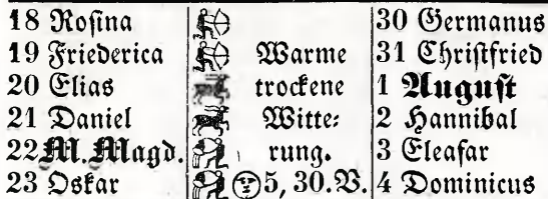 18 Roſina 30 Germanus
19 Friederica Warme 31 Chriſtfried
20 Elias trockene 1 Auguſt
21 Daniel Witte⸗ 2 Hannibal
22 M. Magd. rung. 3 Eleaſar
23 Oskar 5, 30. V. 4 Dominicus